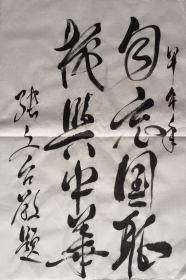 甲午年
勿忘国耻
振兴中华
张文台敬题